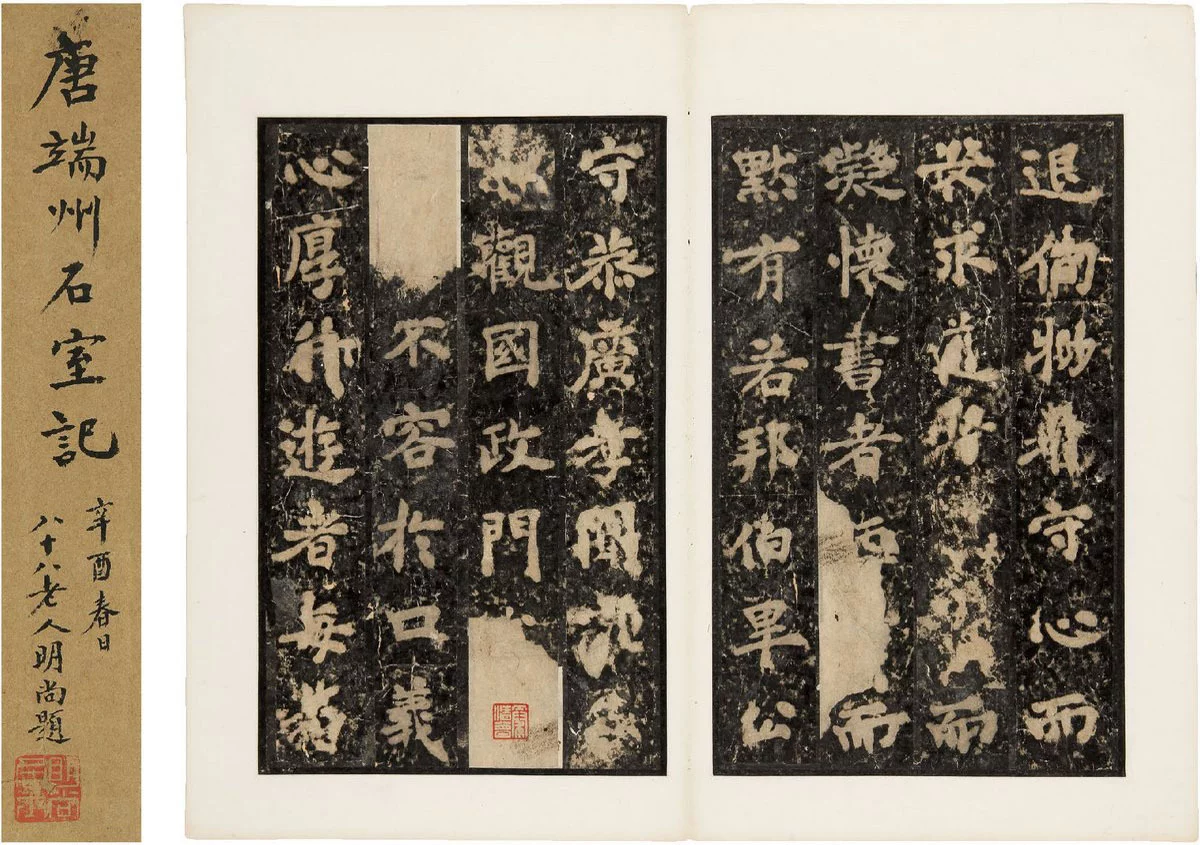 唐端州石室記
辛酉春日
八十八老人明尚題
退徇物難守心而
安求道啓而
凝懷書者而
默有若邦伯畢公
守恭廣孝聞
觀國政門
不容於口義
心厚行遊者每